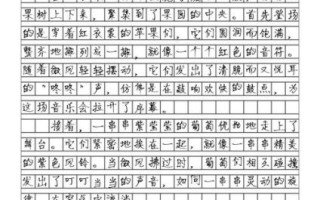 果树上下来，聚集到了果园的中央。首先登场
的是穿着红衣裳的苹果们，它们圆润而饱满，
整齐地排列成一排，就像一个个红色的音符。
随着微风轻轻摆动，它们发出了清脆而又悦耳
的“咚咚”声，仿佛是在敲响欢快的鼓点，为
这场音乐会拉开了序幕。
接着，一串串紫莹莹的葡萄优雅地走上了
舞台。它们紧密地挨在一起，就像一串串精美
的紫色风铃。当微风拂过时，葡萄们相互碰撞
发出了叮叮当当的声音，如同一串串灵动的旋